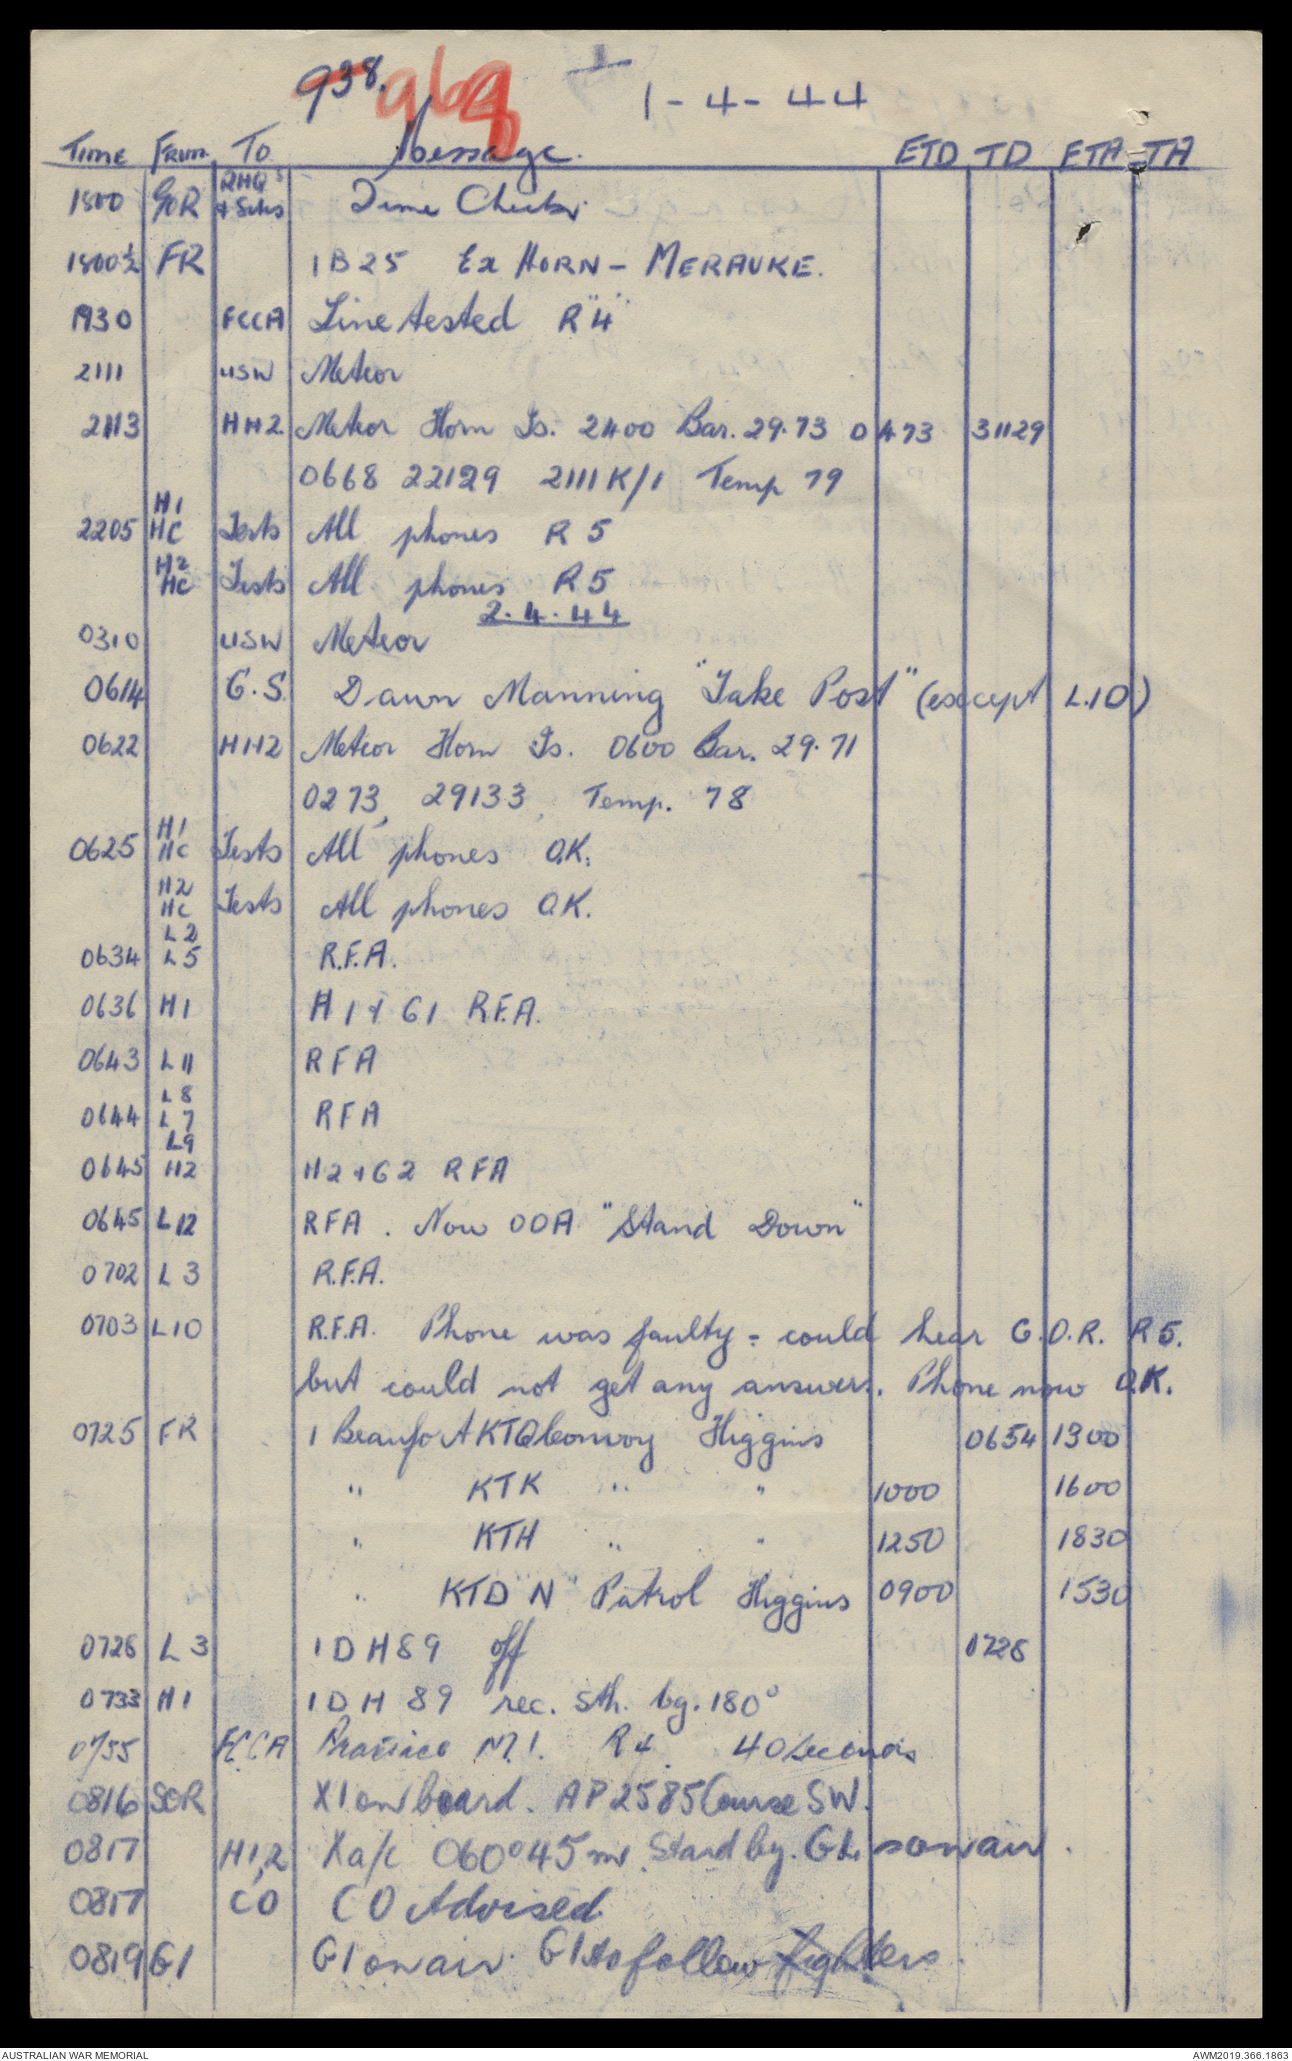 938. 969
1-4-44
TIME FROM TO Message. ETD TD ETA TA
1800 GOR RHQ's & Schs Time Checks.
1800½ FR 1 B25 Ex HORN - MERAUKE.
1930 FCCA Line tested R "4"
2111 USW Meteor
2113 HH2 Meteor Horn Is. 2400 Bar. 29.73 0473 31129
0668 22129 2111K/1 Temp 79
2205 H1 HC Tests All phones R5
H2 HC Tests All phones R5
2.4.44
0310 USW Meteor
0614 G.S. Dawn Manning "Take Post" (except L.10)
0622 HH2 Meteor Horn Is. 0600 Bar. 29.71
0273, 29133, Temp. 78
0625 H1 HC Tests All phones O.K.
H2 HC Tests All phones O.K.
0634 L2 L5 R.F.A.
0636 H1 H1 & G1 R.F.A.
0643 L11 RFA
0644 L8 L7 L9 RFA
0645 H2 H2 & G2 RFA
0645 L12 RFA. Now OOA "Stand Down"
0702 L3 R.F.A.
0703 L10 R.F.A. Phone was faulty - could hear G.O.R. R5.
but could not get any answers. Phone now O.K.
0725 FR 1 Beaufo't KTQ Convoy Higgins 0654 1300
" KTK " " 1000 1600
" KTH " " 1250 1830
" KTD "N" Patrol Higgins 0900 1530
0726 L3 1 DH89 off 0726
0733 H1 1 DH 89 rec. Sth. bg. 180°
0755 FCCA Practice M.1. R4 40 seconds
0816 SOR X1 on board. AP2585 Course SW.
0817 H1,2 X a/c 060° 45 m. Stand by. GLs on air.
0817 CO CO Advised
0819 G1 G1 on air. G1 to follow fighters.
AUSTRALIAN WAR MEMORIAL
AWM2019.366.1863